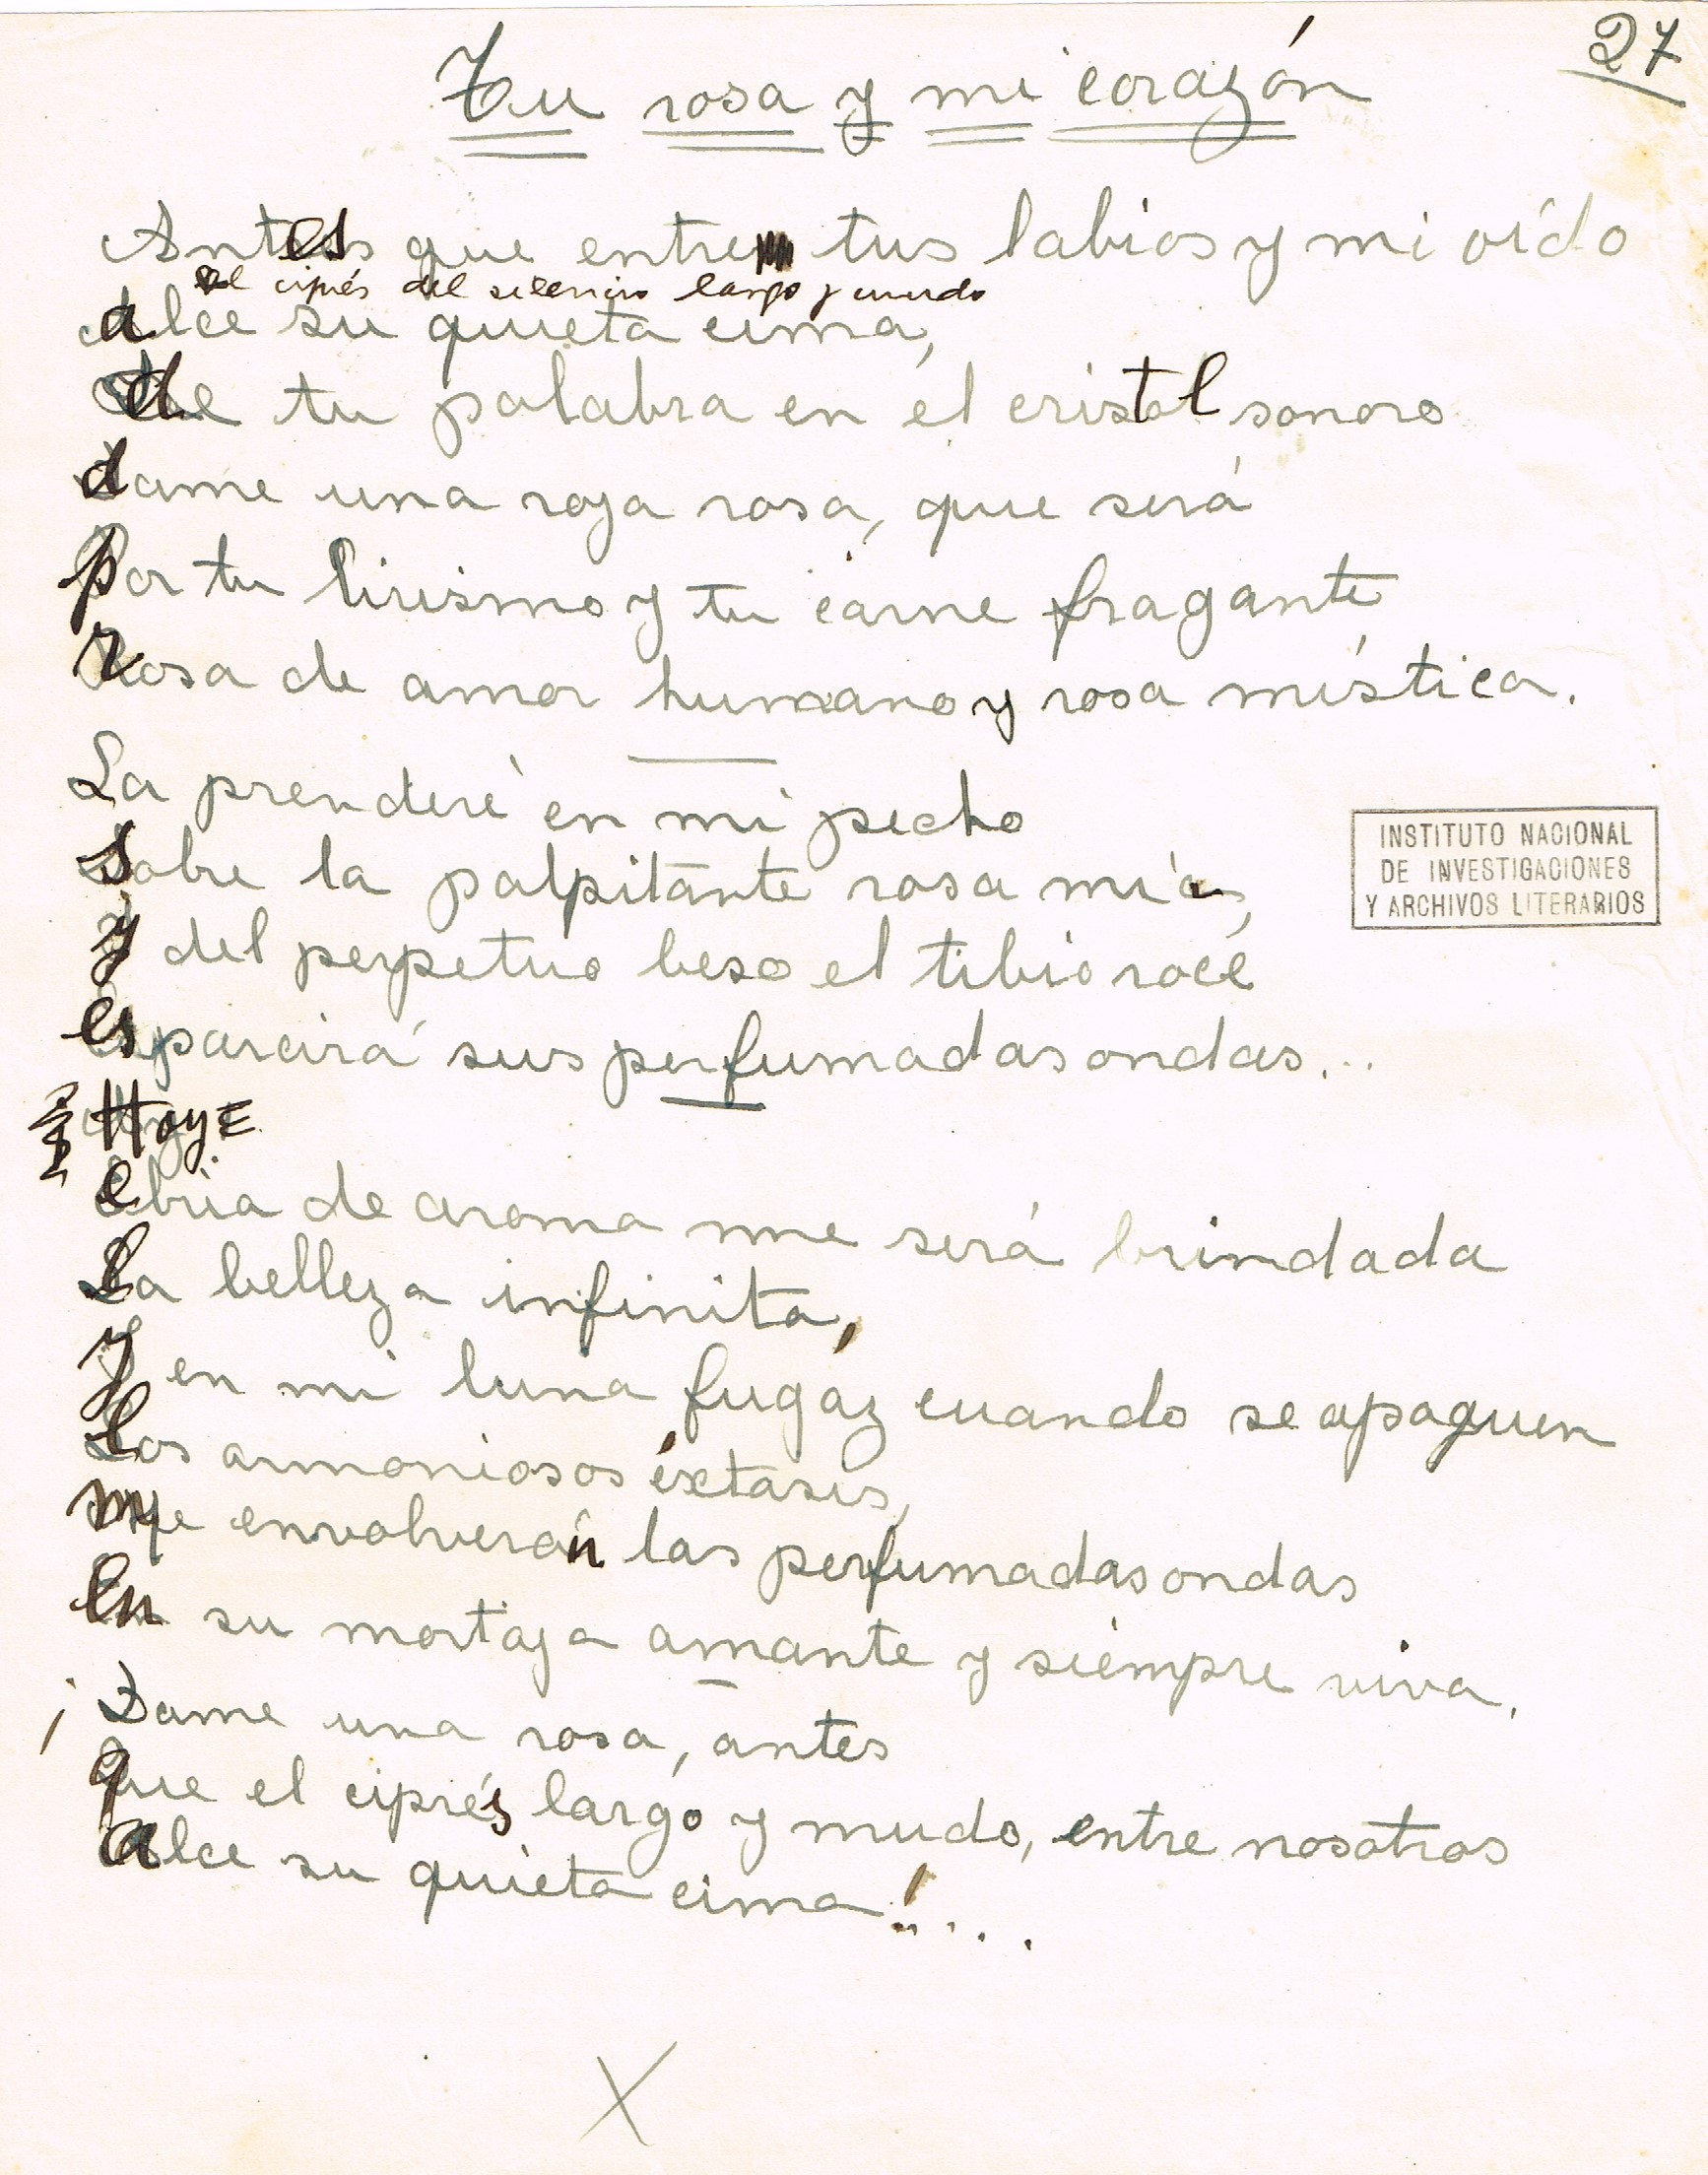 27
Tu rosa y mi corazón
Antes que entre tus labios y mi oído
el ciprés del silencio largo y mudo
alce su quieta cima,
de tu palabra en el cristal sonoro
dame una roja rosa, que será
por tu lirismo y tu carne fragante
rosa de amor humano y rosa mística.
La prenderé en mi pecho
sobre la palpitante rosa mía,
y del perpetuo beso el tibio roce
esparcirá sus perfumadas ondas...
INSTITUTO NACIONAL
DE INVESTIGACIONES
Y ARCHIVOS LITERARIOS
Hoy
ebria de aroma me será brindada
la belleza infinita,
y en mi luna fugaz cuando se apaguen
los armoniosos éxtasis,
me envolverán las perfumadas ondas
en su mortaja amante y siempre viva.
¡Dame una rosa, antes
que el ciprés largo y mudo, entre nosotros
alce su quieta cima!....
X